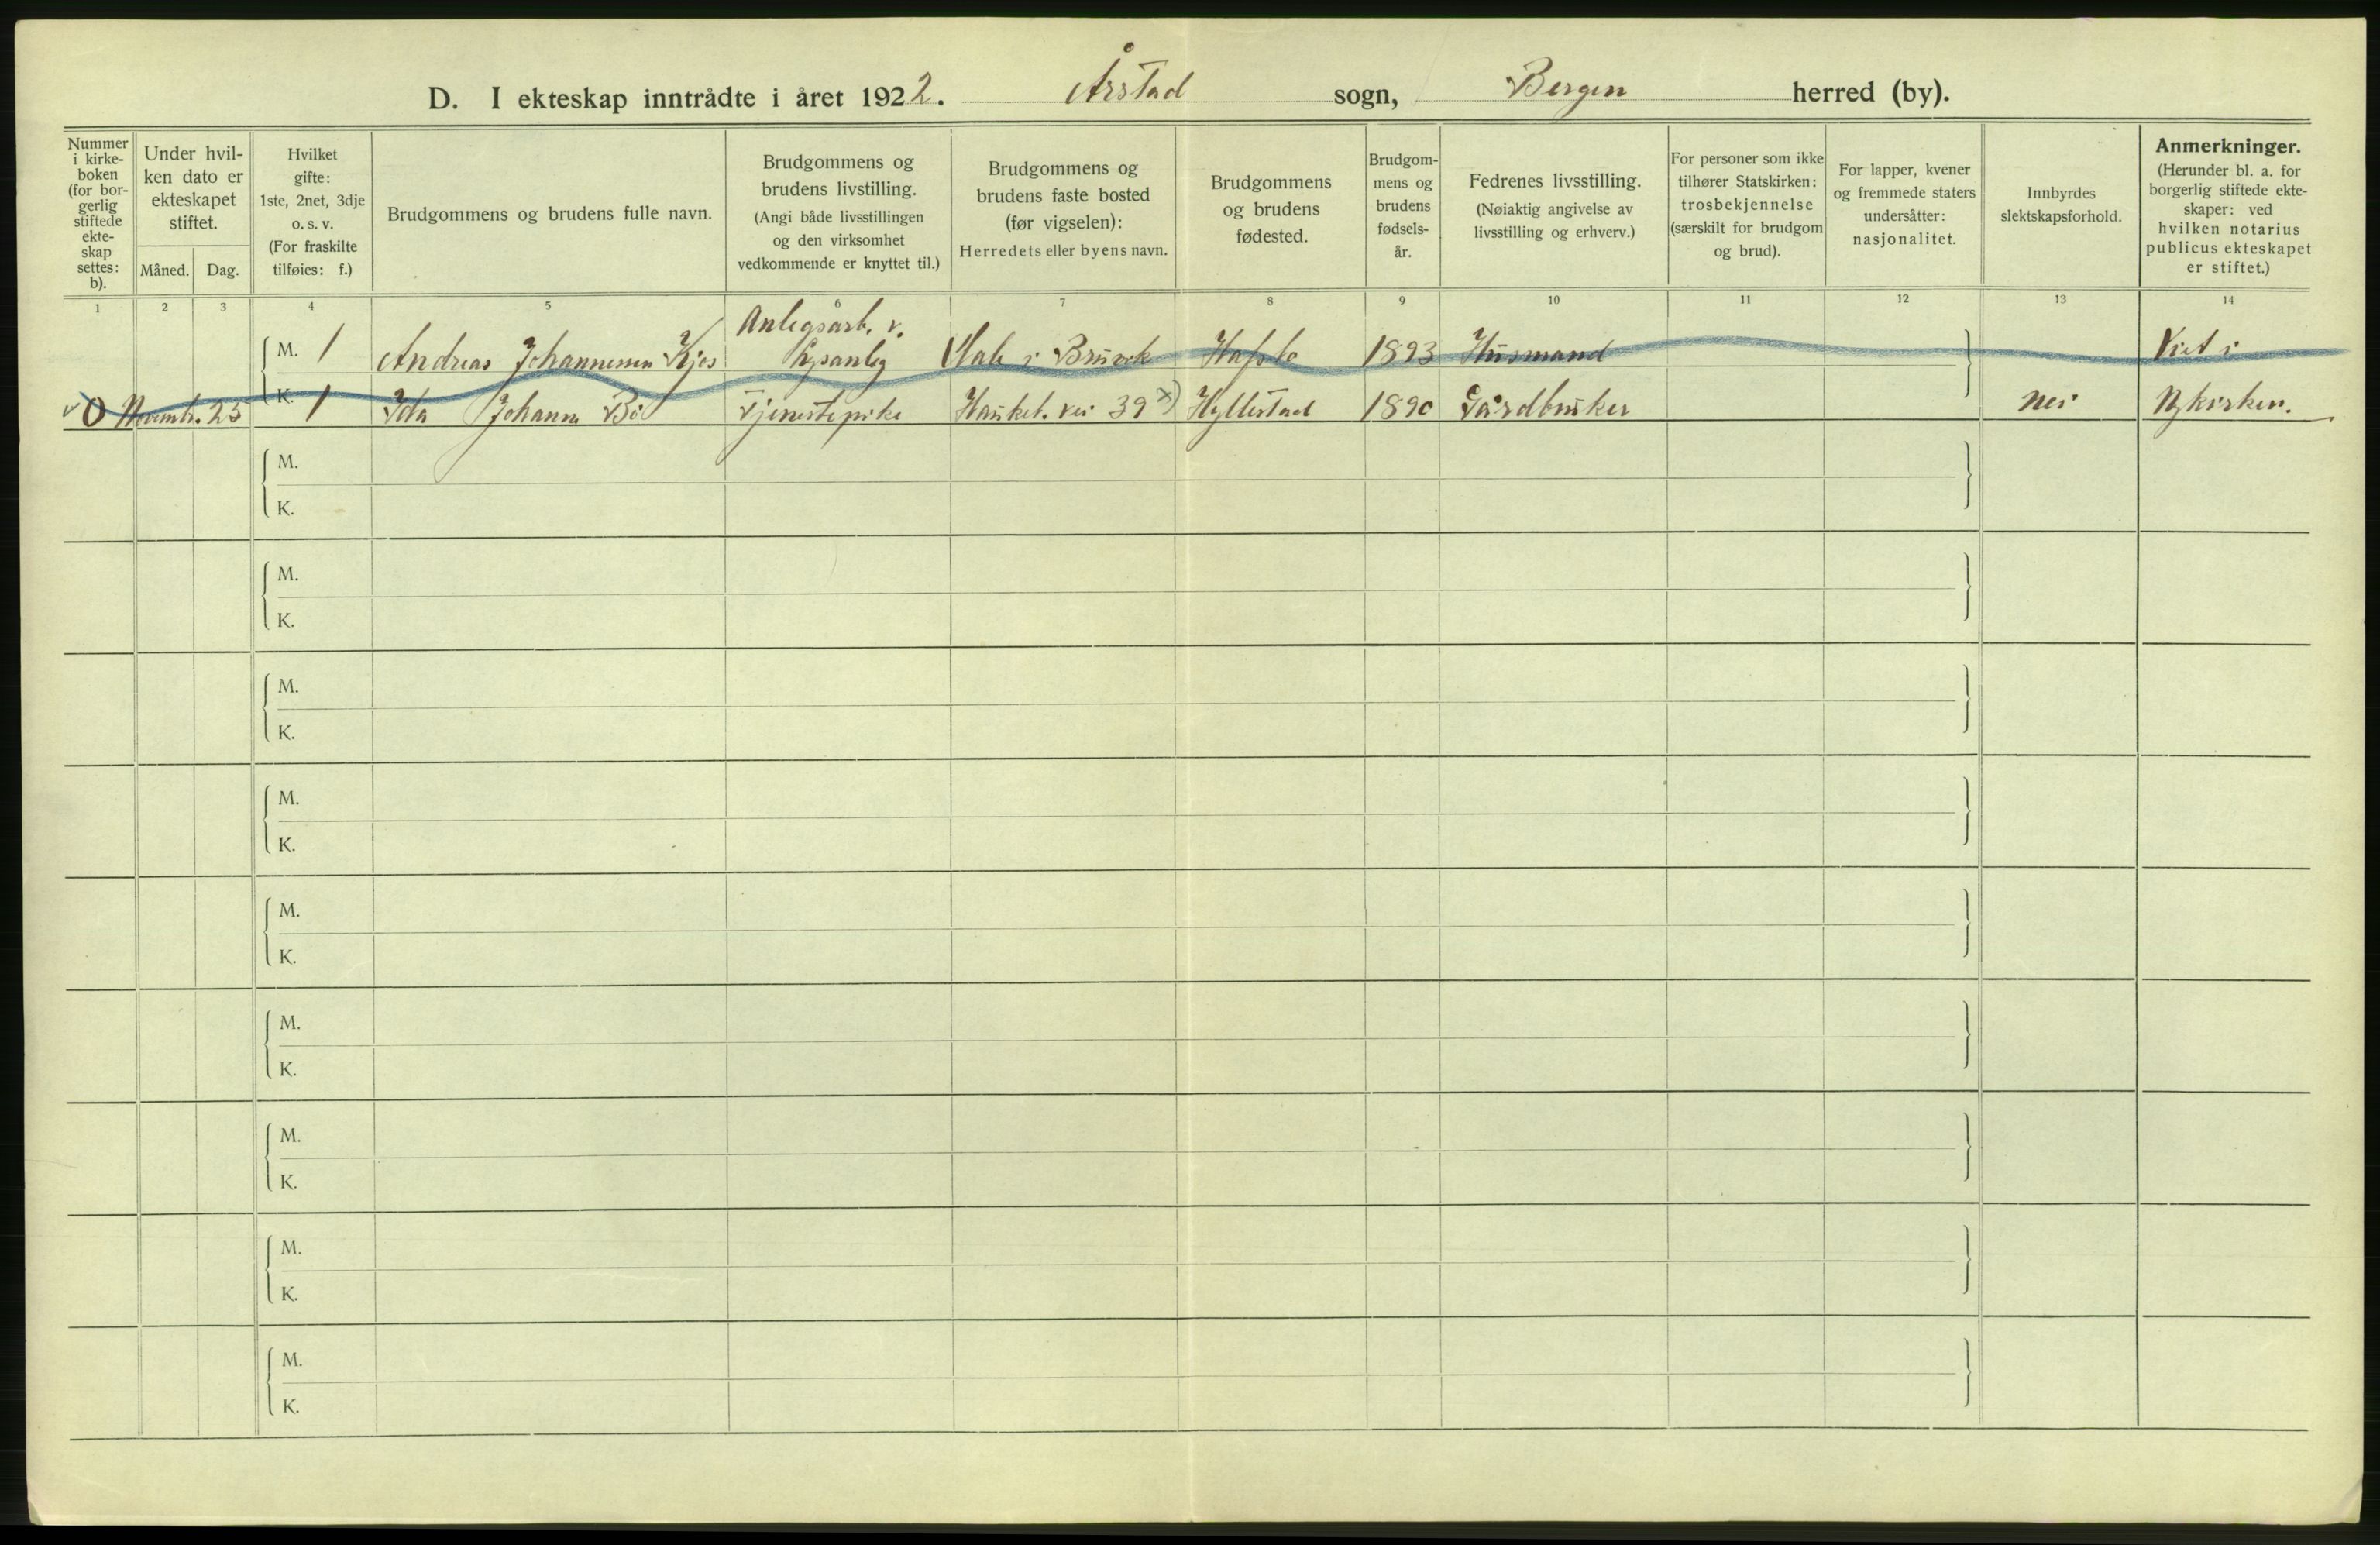 D. I ekteskap inntrådte i året 1922. Årstad sogn, Bergen herred (by).
Nummer i kirke-boken (for bor-gerlig stiftede ekte-skap settes: b).
Under hvil-ken dato er ekteskapet stiftet.
Måned. Dag.
Hvilket gifte: 1ste, 2net, 3dje o. s. v. (For fraskilte tilføies: f.)
Brudgommens og brudens fulle navn.
Brudgommens og brudens livstilling. (Angi både livsstillingen og den virksomhet vedkommende er knyttet til.)
Brudgommens og brudens faste bosted (før vigselen): Herredets eller byens navn.
Brudgommens og brudens fødested.
Brudgom-mens og brudens fødsels-år.
Fedrenes livsstilling. (Nøiaktig angivelse av livsstilling og erhverv.)
For personer som ikke tilhører Statskirken: trosbekjennelse (særskilt for brudgom og brud).
For lapper, kvener og fremmede staters undersåtter: nasjonalitet.
Innbyrdes slektskapsforhold.
Anmerkninger. (Herunder bl. a. for borgerlig stiftede ekte-skaper: ved hvilken notarius publicus ekteskapet er stiftet.)
1 2 3 4 5 6 7 8 9 10 11 12 13 14
Anlegsarb. v.
M. 1 Andreas Johannessen Kjos Hafslo 1893 Husmand Viet i
0 Novemb. 25 K. 1 Ida Johanne Bö Tjenestepike Hauket. vei 39 x) Hyllestad 1890 Gårdbruker Nei Nykirken.
M.
K.
M.
K.
M.
K.
M.
K.
M.
K.
M.
K.
M.
K.
M.
K.
M.
K.